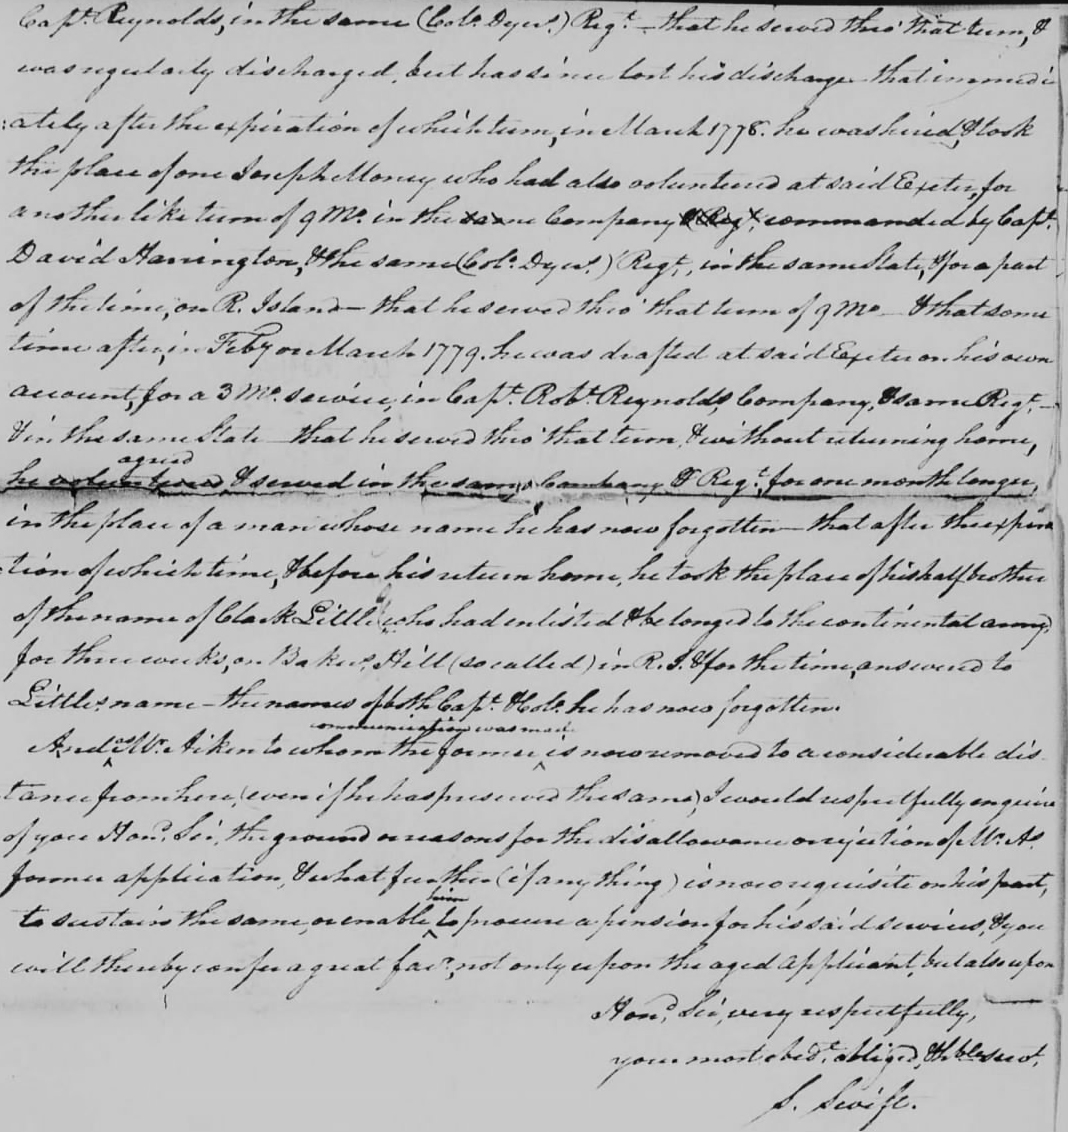 Capt. Reynolds, in the same (Colo. Dyer's.) Regt. — that he served thro' that term, &
was regularly discharged, but has since lost his discharge — that immedi
ately after the expiration of which term, in March 1778. he was hired, & took
the place of one Joseph Money who had also volunteered at said Exeter, for
another like term of 9 Mo. in the same Company & Regt. commanded by Capt.
David Harrington, & the same (Colo. Dyer's.) Regt., in the same State, & for a part
of the time, on R. Island — that he served thro' that term of 9 Mo — & that some
time after, in Feby or March 1779. he was drafted at said Exeter on his own
account, for a 3 Mo. service, in Capt. Robt. Reynolds, Company, & same Regt. —
& in the same State — that he served thro' that term, & without returning home,
agreed
he volunteered & served in the same Company & Regt. for one month longer,
in the place of a man whose name he has now forgotten — that after the expira
tion of which time, & before his return home, he took the place of his half brother
of the name of Clark Little (who had enlisted & belonged to the continental army)
for three weeks, on Bakers, Hill (so called) in R. I. & for the time, answered to
Little's name — the names of both Capt. & Colo. he has now forgotten.
communication was made
And as Mr. Aiken to whom the former is now removed to a considerable dis
tance from here, (even if he has preserved the same) I would respectfully enquire
of your Hond. Sir, the ground or reasons for the disallowance or rejection of Mr. A's.
former application, & what further (if any thing) is now requisite on his part,
him
to sustain the same, or enable to procure a pension for his said services, & you
will thereby confer a great favr. not only upon the aged applicant, but also upon
Hond. Sir, very respectfully,
your most obedt. obliged, & hble servt.
S. Swift.